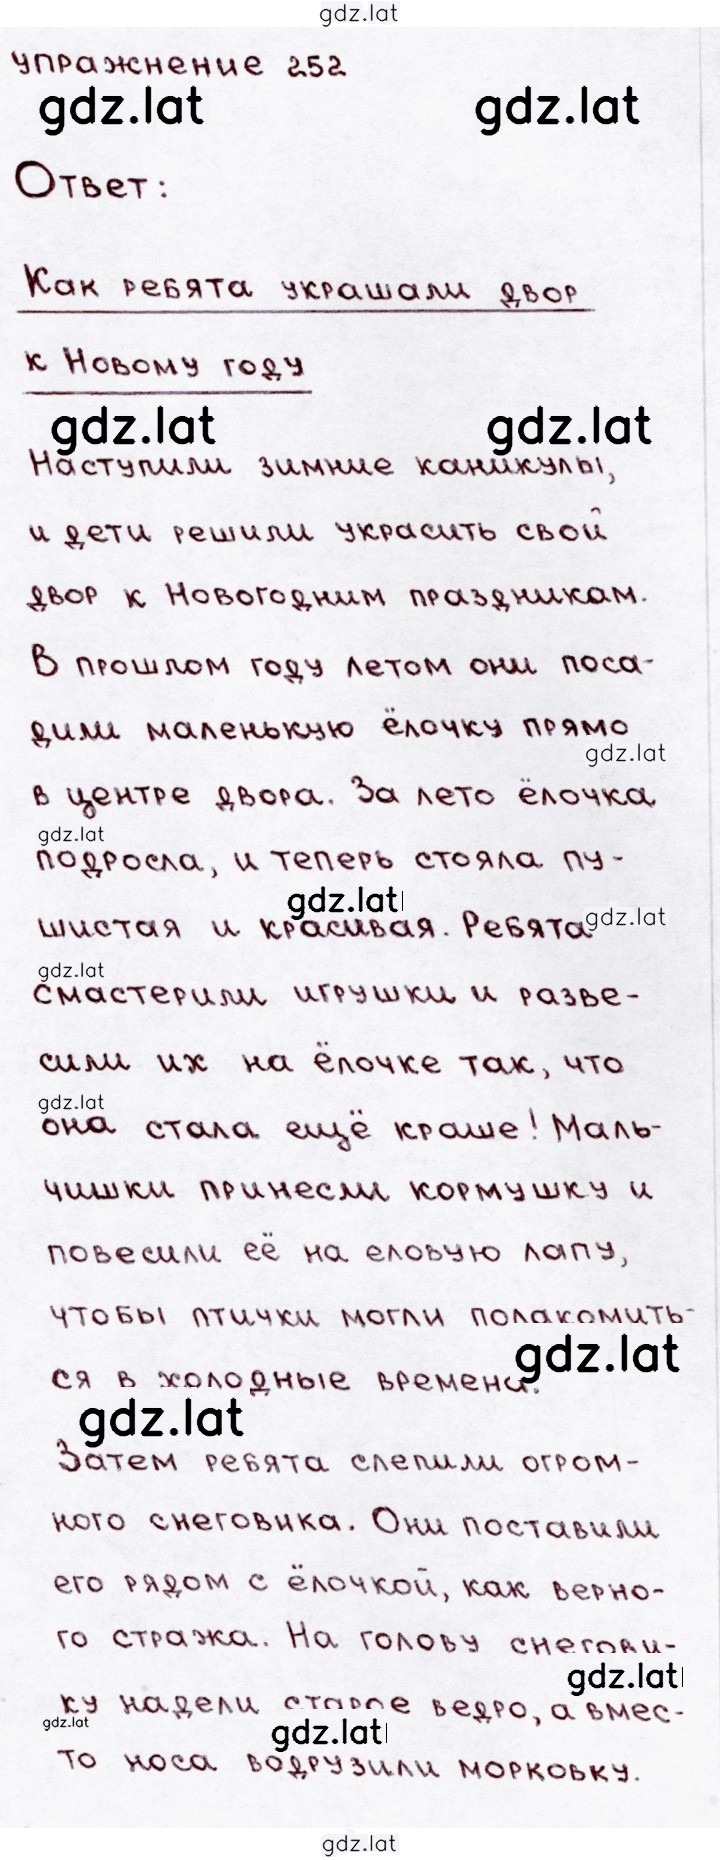 gdz.lat
упражнение 252
gdz.lat gdz.lat
Ответ:
Как ребята украшали двор
к Новому году
gdz.lat gdz.lat
Наступили зимние каникулы,
и дети решили украсить свой
двор к Новогодним праздникам.
В прошлом году летом они поса-
дили маленькую ёлочку прямо
gdz.lat
в центре двора. За лето ёлочка
gdz.lat
подросла, и теперь стояла пу-
gdz.lat
шистая и красивая. Ребята
gdz.lat
gdz.lat
смастерили игрушки и разве-
сили их на ёлочке так, что
gdz.lat
она стала ещё краше! Маль-
чишки принесли кормушку и
повесили её на еловую лапу,
чтобы птички могли полакомить-
gdz.lat
ся в холодные времена.
gdz.lat
Затем ребята слепили огром-
ного снеговика. Они поставили
его рядом с ёлочкой, как верно-
го стража. На голову снегови-
gdz.lat
ку надели старое ведро, а вмес-
gdz.lat
gdz.lat
то носа водрузили морковку.
gdz.lat